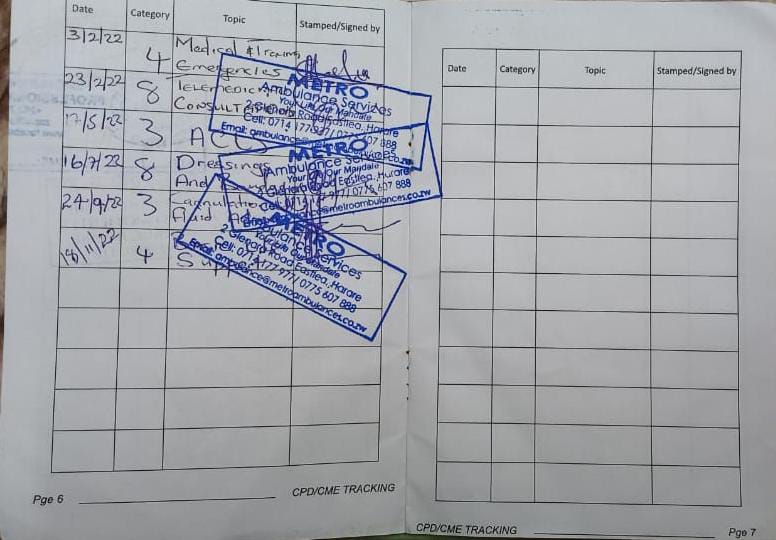 Date Category Topic Stamped/Signed by
3/2/22 4 Medical
Emergencies
23/2/22 8 Telemedicine
17/5/22 3
16/7/22 8 Dressings
And
24/9/22 3 Cannulation
Fluid
18/11/22 4
METRO
Ambulance Services
Your Life Our Mandate
2 Glenara Road Eastlea, Harare
Cell: 0714 177 977 / 0775 607 888
METRO
Ambulance Services
Your Life Our Mandate
2 Glenara Road Eastlea, Harare
0775 607 888
ambulance@metroambulances.co.zw
METRO
Ambulance Services
Your Life Our Mandate
2 Glenara Road Eastlea, Harare
Cell: 0714 177 977 / 0775 607 888
Email: ambulance@metroambulances.co.zw
Pge 6 CPD/CME TRACKING
Date Category Topic Stamped/Signed by
CPD/CME TRACKING Pge 7